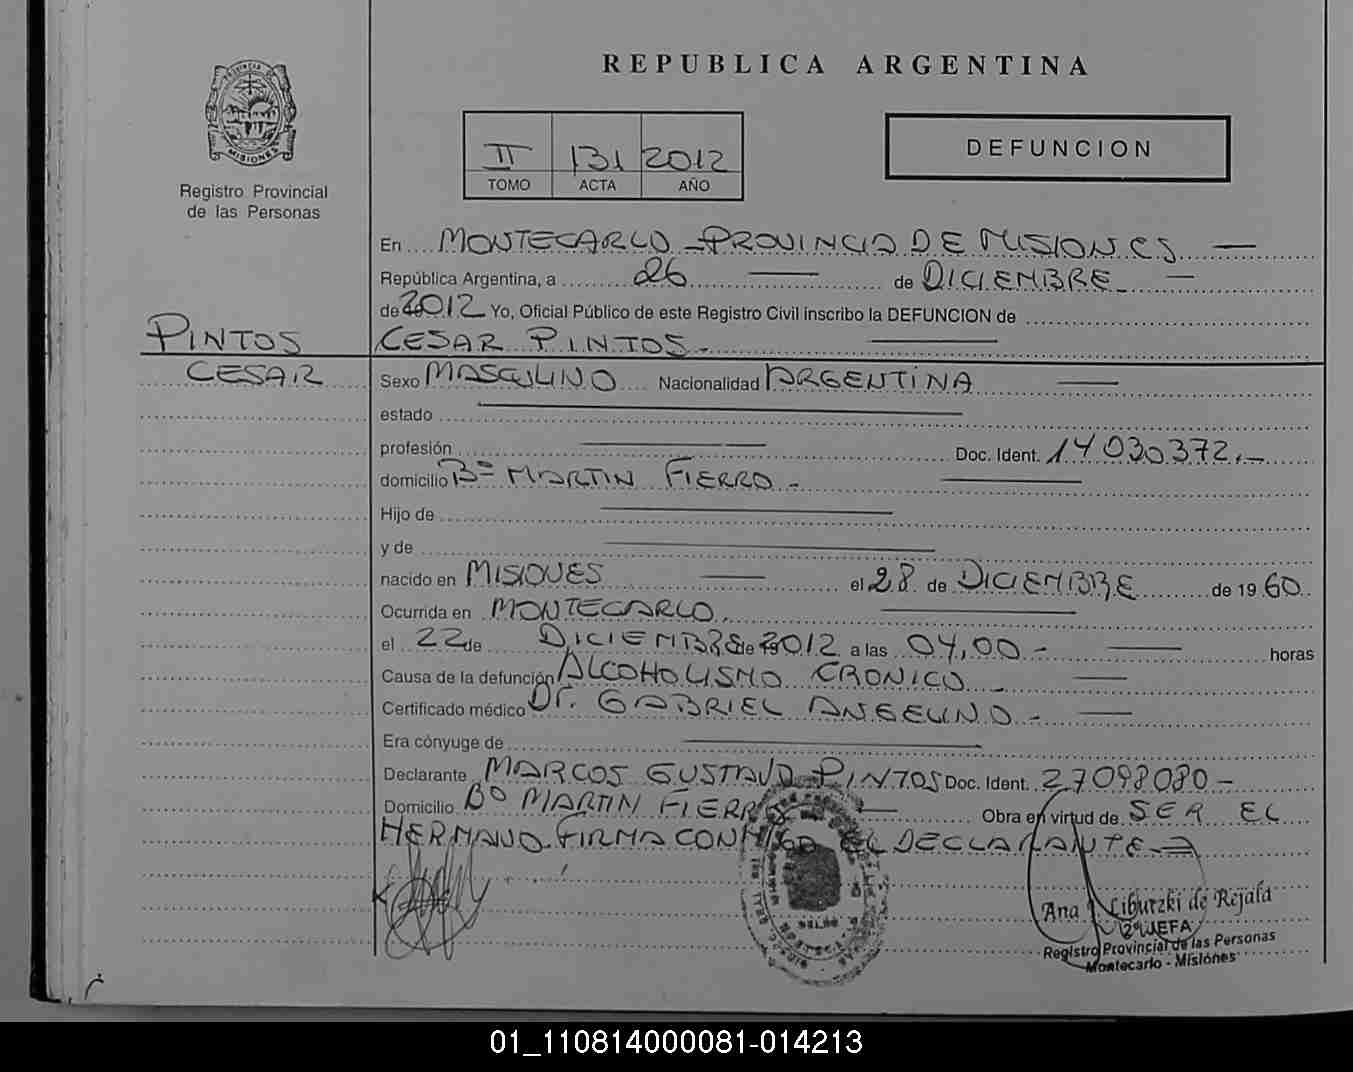 REPUBLICA ARGENTINA
PROVINCIA DE
MISIONES
Registro Provincial
de las Personas
II 131 2012
TOMO ACTA AÑO
DEFUNCION
En MONTECARLO - PROVINCIA DE MISIONES —
República Argentina, a 26 — de DICIEMBRE —
de 2012 Yo, Oficial Público de este Registro Civil inscribo la DEFUNCION de
PINTOS
CESAR PINTOS. —
CESAR
Sexo MASCULINO Nacionalidad ARGENTINA —
estado —
profesión — Doc. Ident. 14030372.-
domicilio Bº MARTIN FIERRO - —
Hijo de —
y de —
nacido en MISIONES — el 28 de DICIEMBRE de 1960
Ocurrida en MONTECARLO. —
el 22 de DICIEMBRE de 2012 a las 04,00 - — horas
Causa de la defunción ALCOHOLISMO CRONICO - —
Certificado médico Dr. GABRIEL ANGELINO - —
Era cónyuge de —
Declarante MARCOS GUSTAVO PINTOS Doc. Ident. 27098080-
Domicilio Bº MARTIN FIERRO — Obra en virtud de SER EL
HERMANO. FIRMA CONMIGO EL DECLARANTE-
Ana Liburzki de Rejala
2º JEFA
Registro Provincial de las Personas
Montecarlo - Misiones
01_110814000081-014213